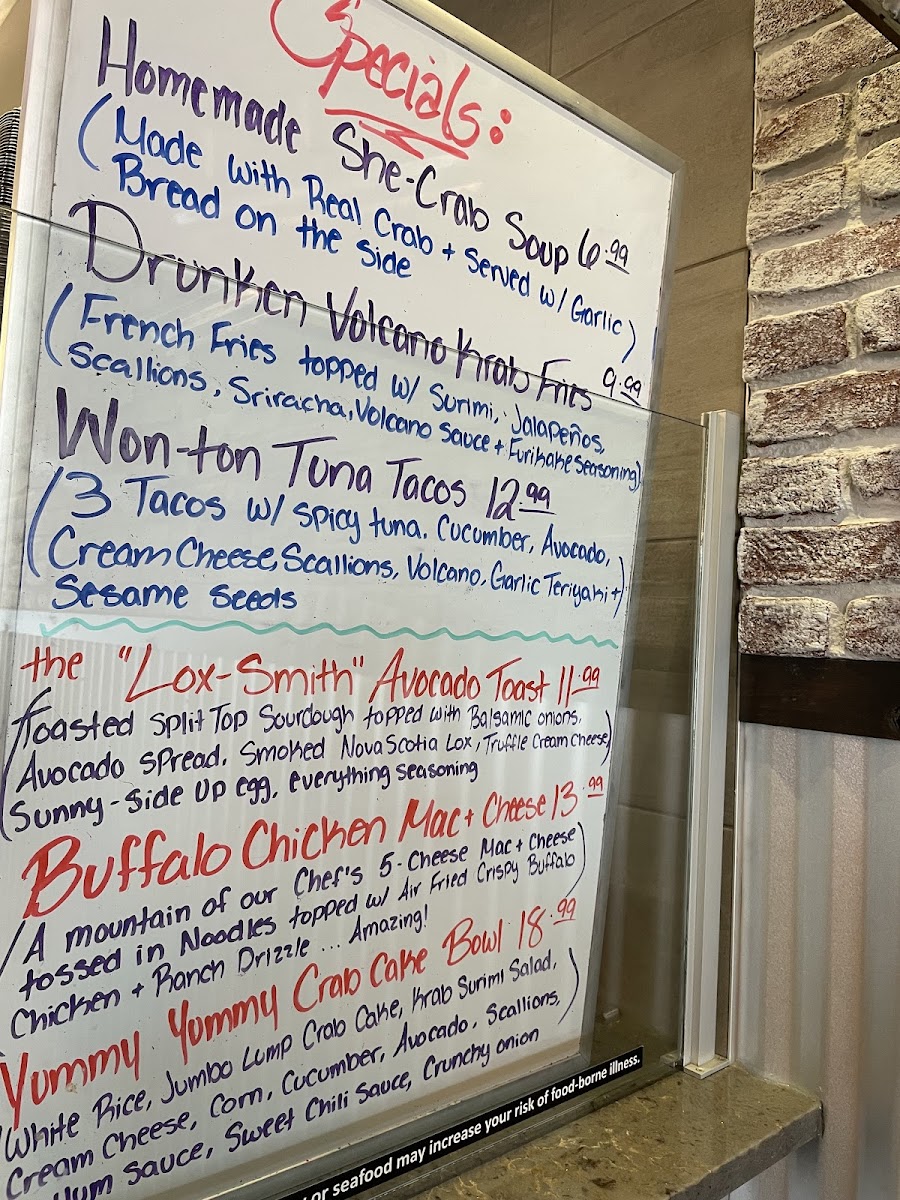 Specials:
Homemade She-Crab Soup 6.99
(Made with Real Crab + served w/ Garlic
Bread on the side)
Drunken Volcano Krab Fries 9.99
(French Fries topped w/ Surimi, Jalapeños,
Scallions, Sriracha, Volcano Sauce + Furikake Seasoning)
Won-ton Tuna Tacos 12.99
(3 Tacos w/ spicy tuna, Cucumber, Avocado,
Cream Cheese, Scallions, Volcano, Garlic Teriyaki +
Sesame Seeds)
the "Lox-Smith" Avocado Toast 11.99
(Toasted Split Top Sourdough topped with Balsamic onions,
Avocado spread, Smoked Nova Scotia Lox, Truffle Cream Cheese,
Sunny-side up egg, everything seasoning)
Buffalo Chicken Mac + Cheese 13.99
(A mountain of our Chef's 5-Cheese Mac + Cheese
tossed in Noodles topped w/ Air Fried Crispy Buffalo
Chicken + Ranch Drizzle ... Amazing!)
Yummy Yummy Crab Cake Bowl 18.99
(White Rice, Jumbo Lump Crab Cake, Krab Surimi Salad,
Cream Cheese, Corn, Cucumber, Avocado, Scallions,
Sauce, Sweet Chili Sauce, Crunchy onion)
or seafood may increase your risk of food-borne illness.